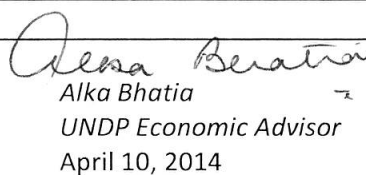 Alka Bhatia
Alka Bhatia
UNDP Economic Advisor
April 10, 2014